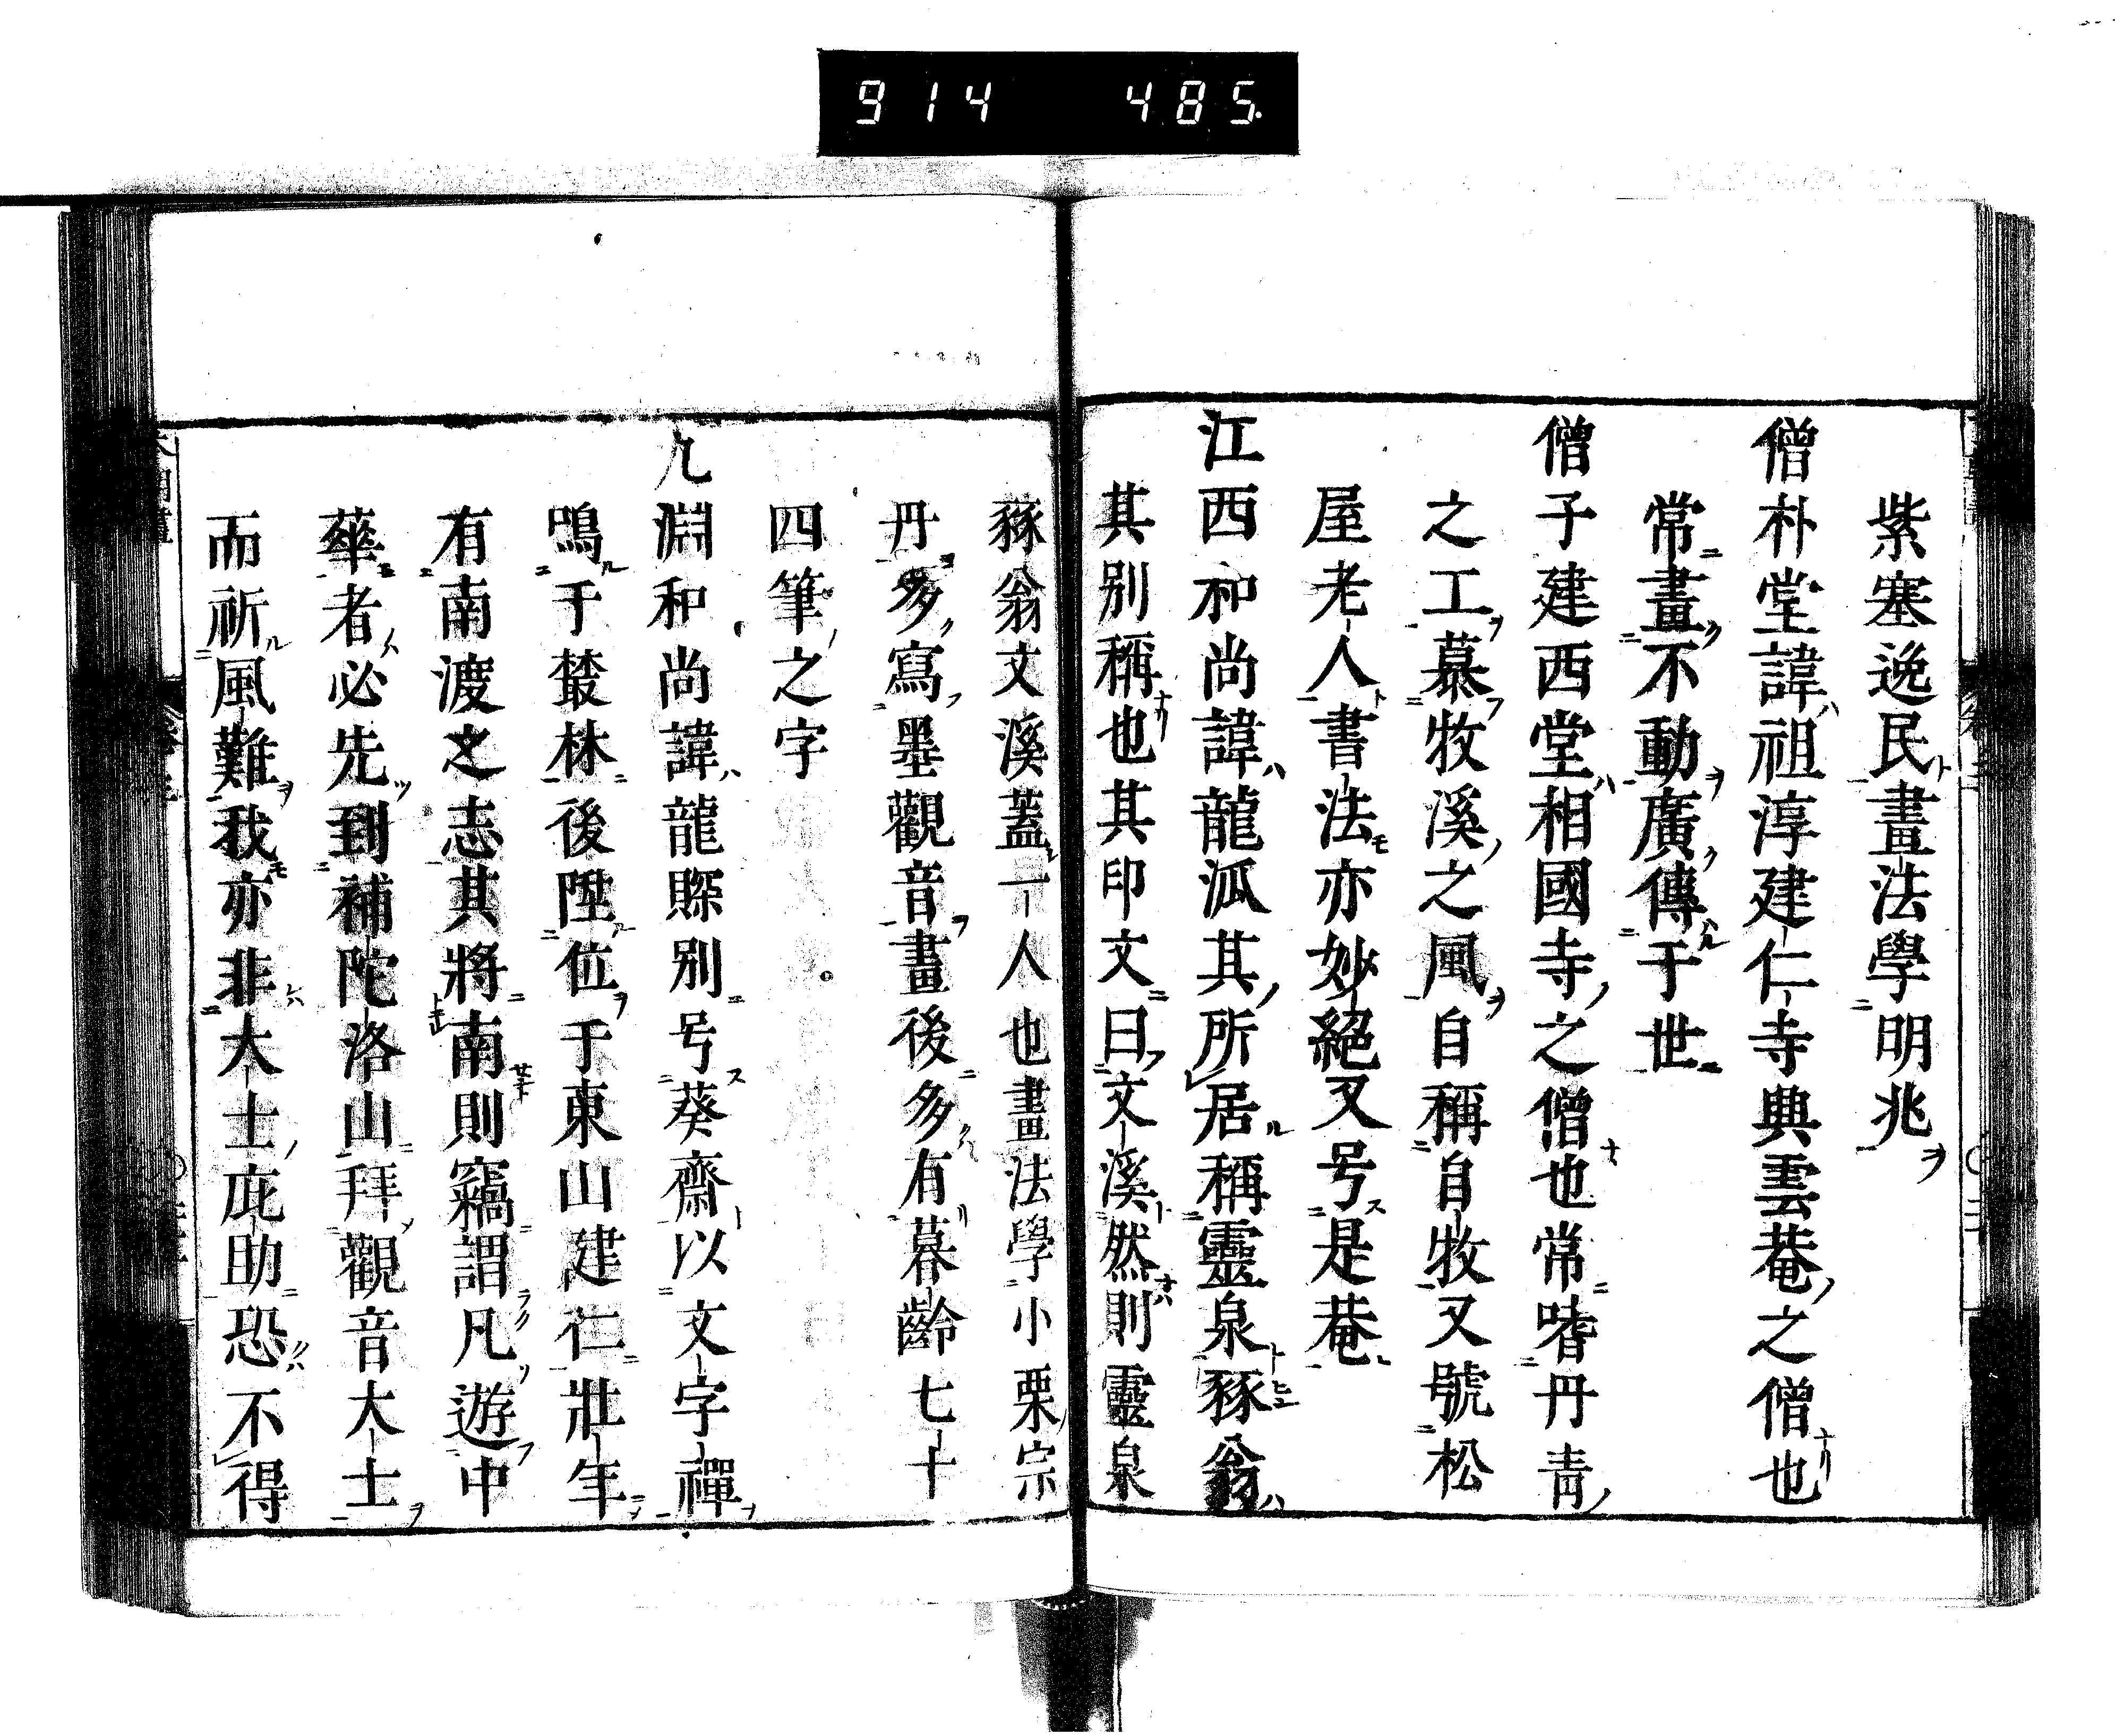 914 485.
紫塞逸民畫法學明兆
僧朴堂諱祖淳建仁寺典雲菴之僧也
常畫不動廣傳于世
僧子建西堂相國寺之僧也常嗜丹青
之工慕牧溪之風自稱自牧又號松
屋老人書法亦妙絕又号是菴
江西和尚諱龍泒其所居稱靈泉豩翁
其別稱也其印文曰文溪然則靈泉
豩翁文溪蓋一人也畫法學小栗宗
丹多寫墨觀音畫後多有暮齡七十
四筆之字
九淵和尚諱龍賝別号葵齋以文字禪
鳴于叢林後陞位于東山建仁壯年
有南渡之志其將南則竊謂凡遊中
華者必先到補陀洛山拜觀音大士
而祈風難我亦非大士庇助恐不得